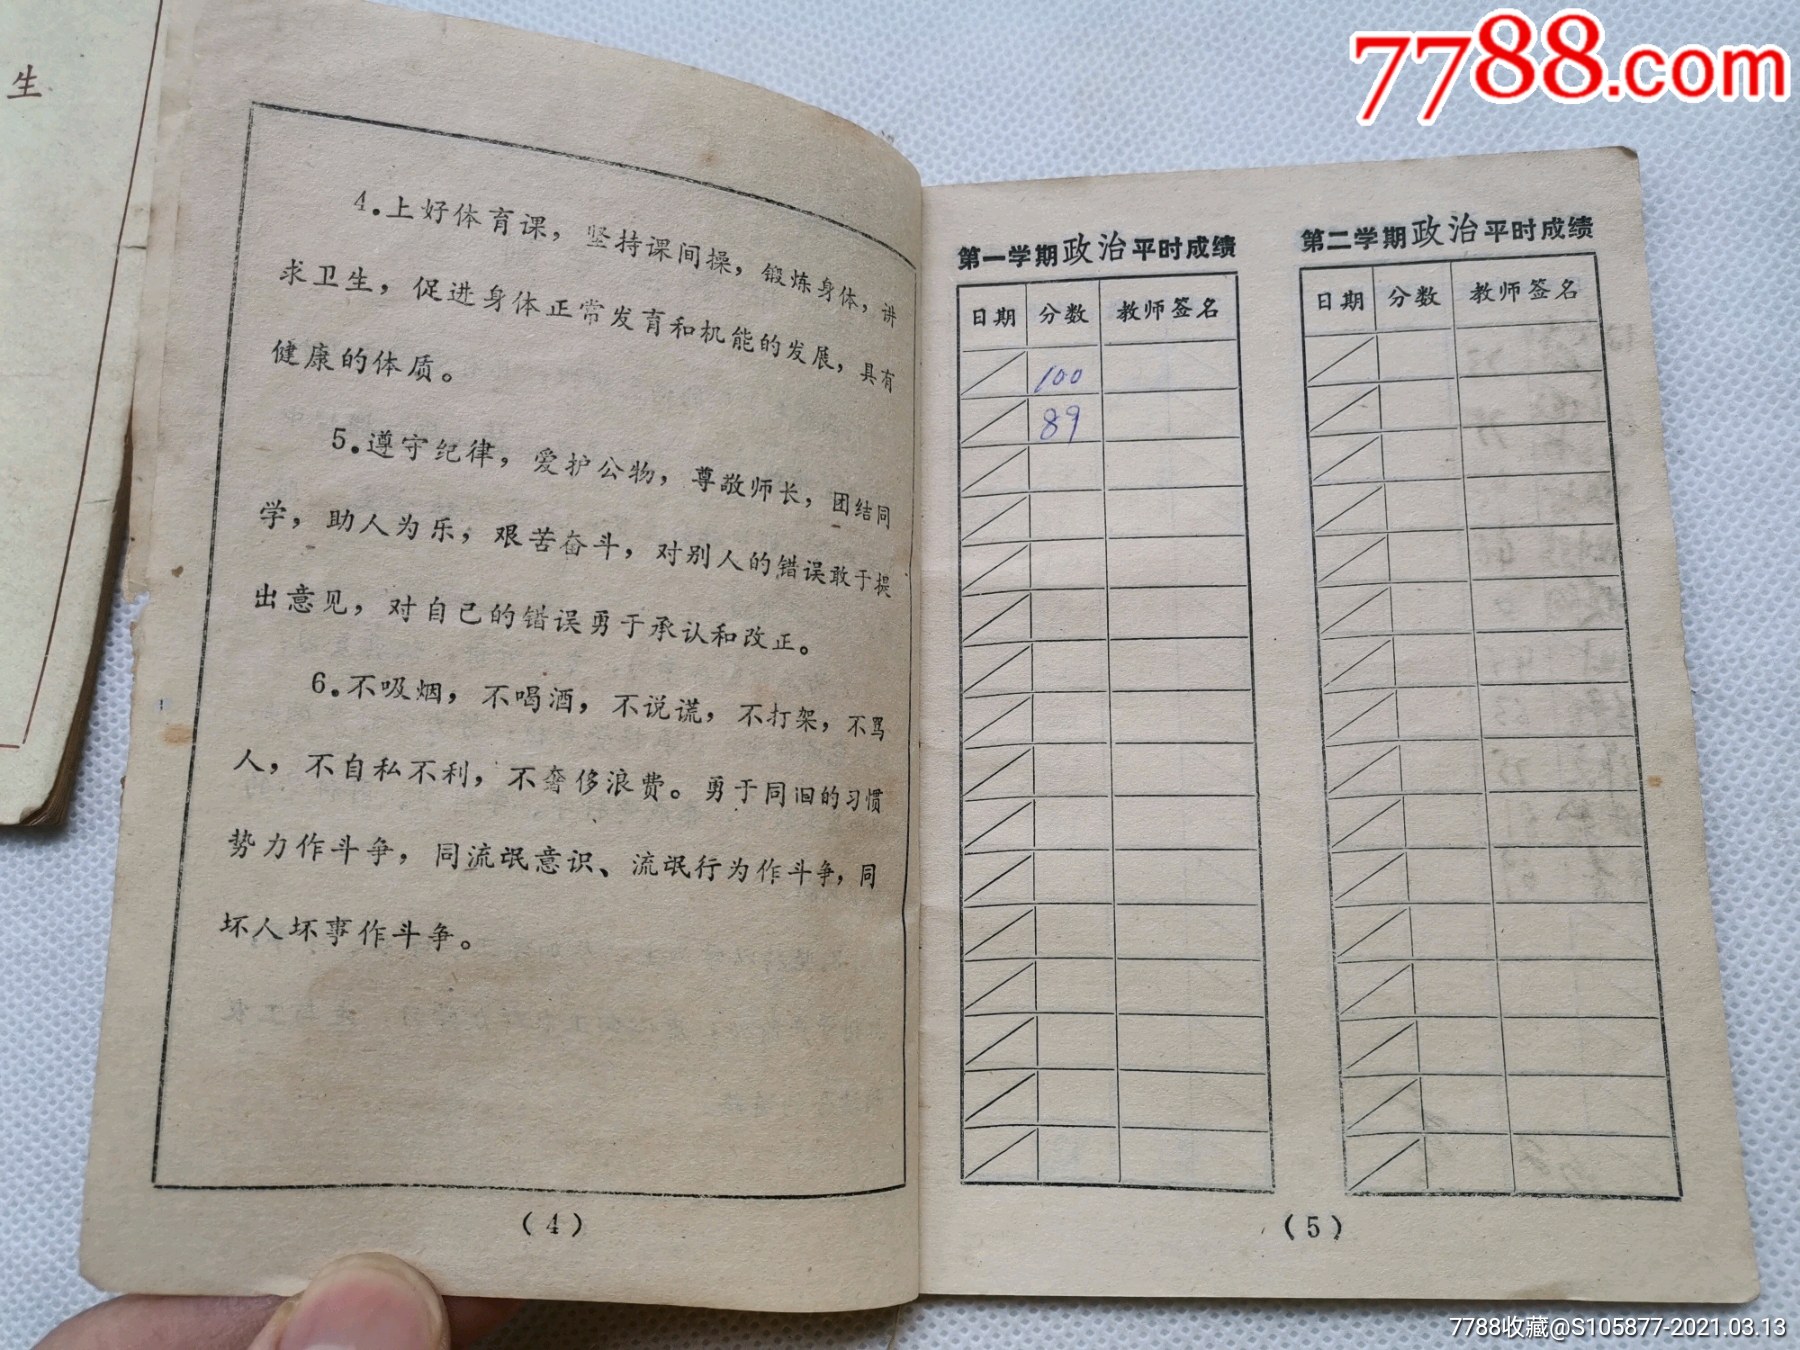 7788.com
生
4.上好体育课，坚持课间操，锻炼身体，讲
求卫生，促进身体正常发育和机能的发展，具有
健康的体质。
5.遵守纪律，爱护公物，尊敬师长，团结同
学，助人为乐，艰苦奋斗，对别人的错误敢于提
出意见，对自己的错误勇于承认和改正。
6.不吸烟，不喝酒，不说谎，不打架，不骂
人，不自私不利，不奢侈浪费。勇于同旧的习惯
势力作斗争，同流氓意识、流氓行为作斗争，同
坏人坏事作斗争。
(4)
第一学期政治平时成绩
日期 分数 教师签名
100
89
第二学期政治平时成绩
日期 分数 教师签名
(5)
7788收藏@S105877-2021.03.13